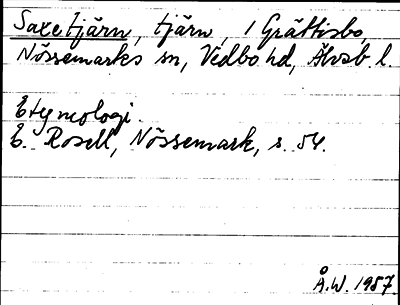 Saxetjärn, tjärn, i Gråttisbo,
Nössemarks sn, Vedbo hd, Älvsb. l.
Etymologi.
E. Rosell, Nössemark, s. 54.
Å.W. 1987.